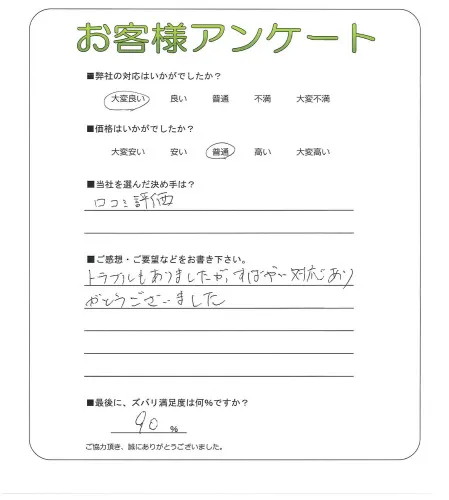 お客様アンケート
■弊社の対応はいかがでしたか？
大変良い 良い 普通 不満 大変不満
■価格はいかがでしたか？
大変安い 安い 普通 高い 大変高い
■当社を選んだ決め手は？
口コミ評価
■ご感想・ご要望などをお書き下さい。
トラブルもありましたが、すばやい対応あり
がとうございました
■最後に、ズバリ満足度は何%ですか？
90 %
ご協力頂き、誠にありがとうございました。